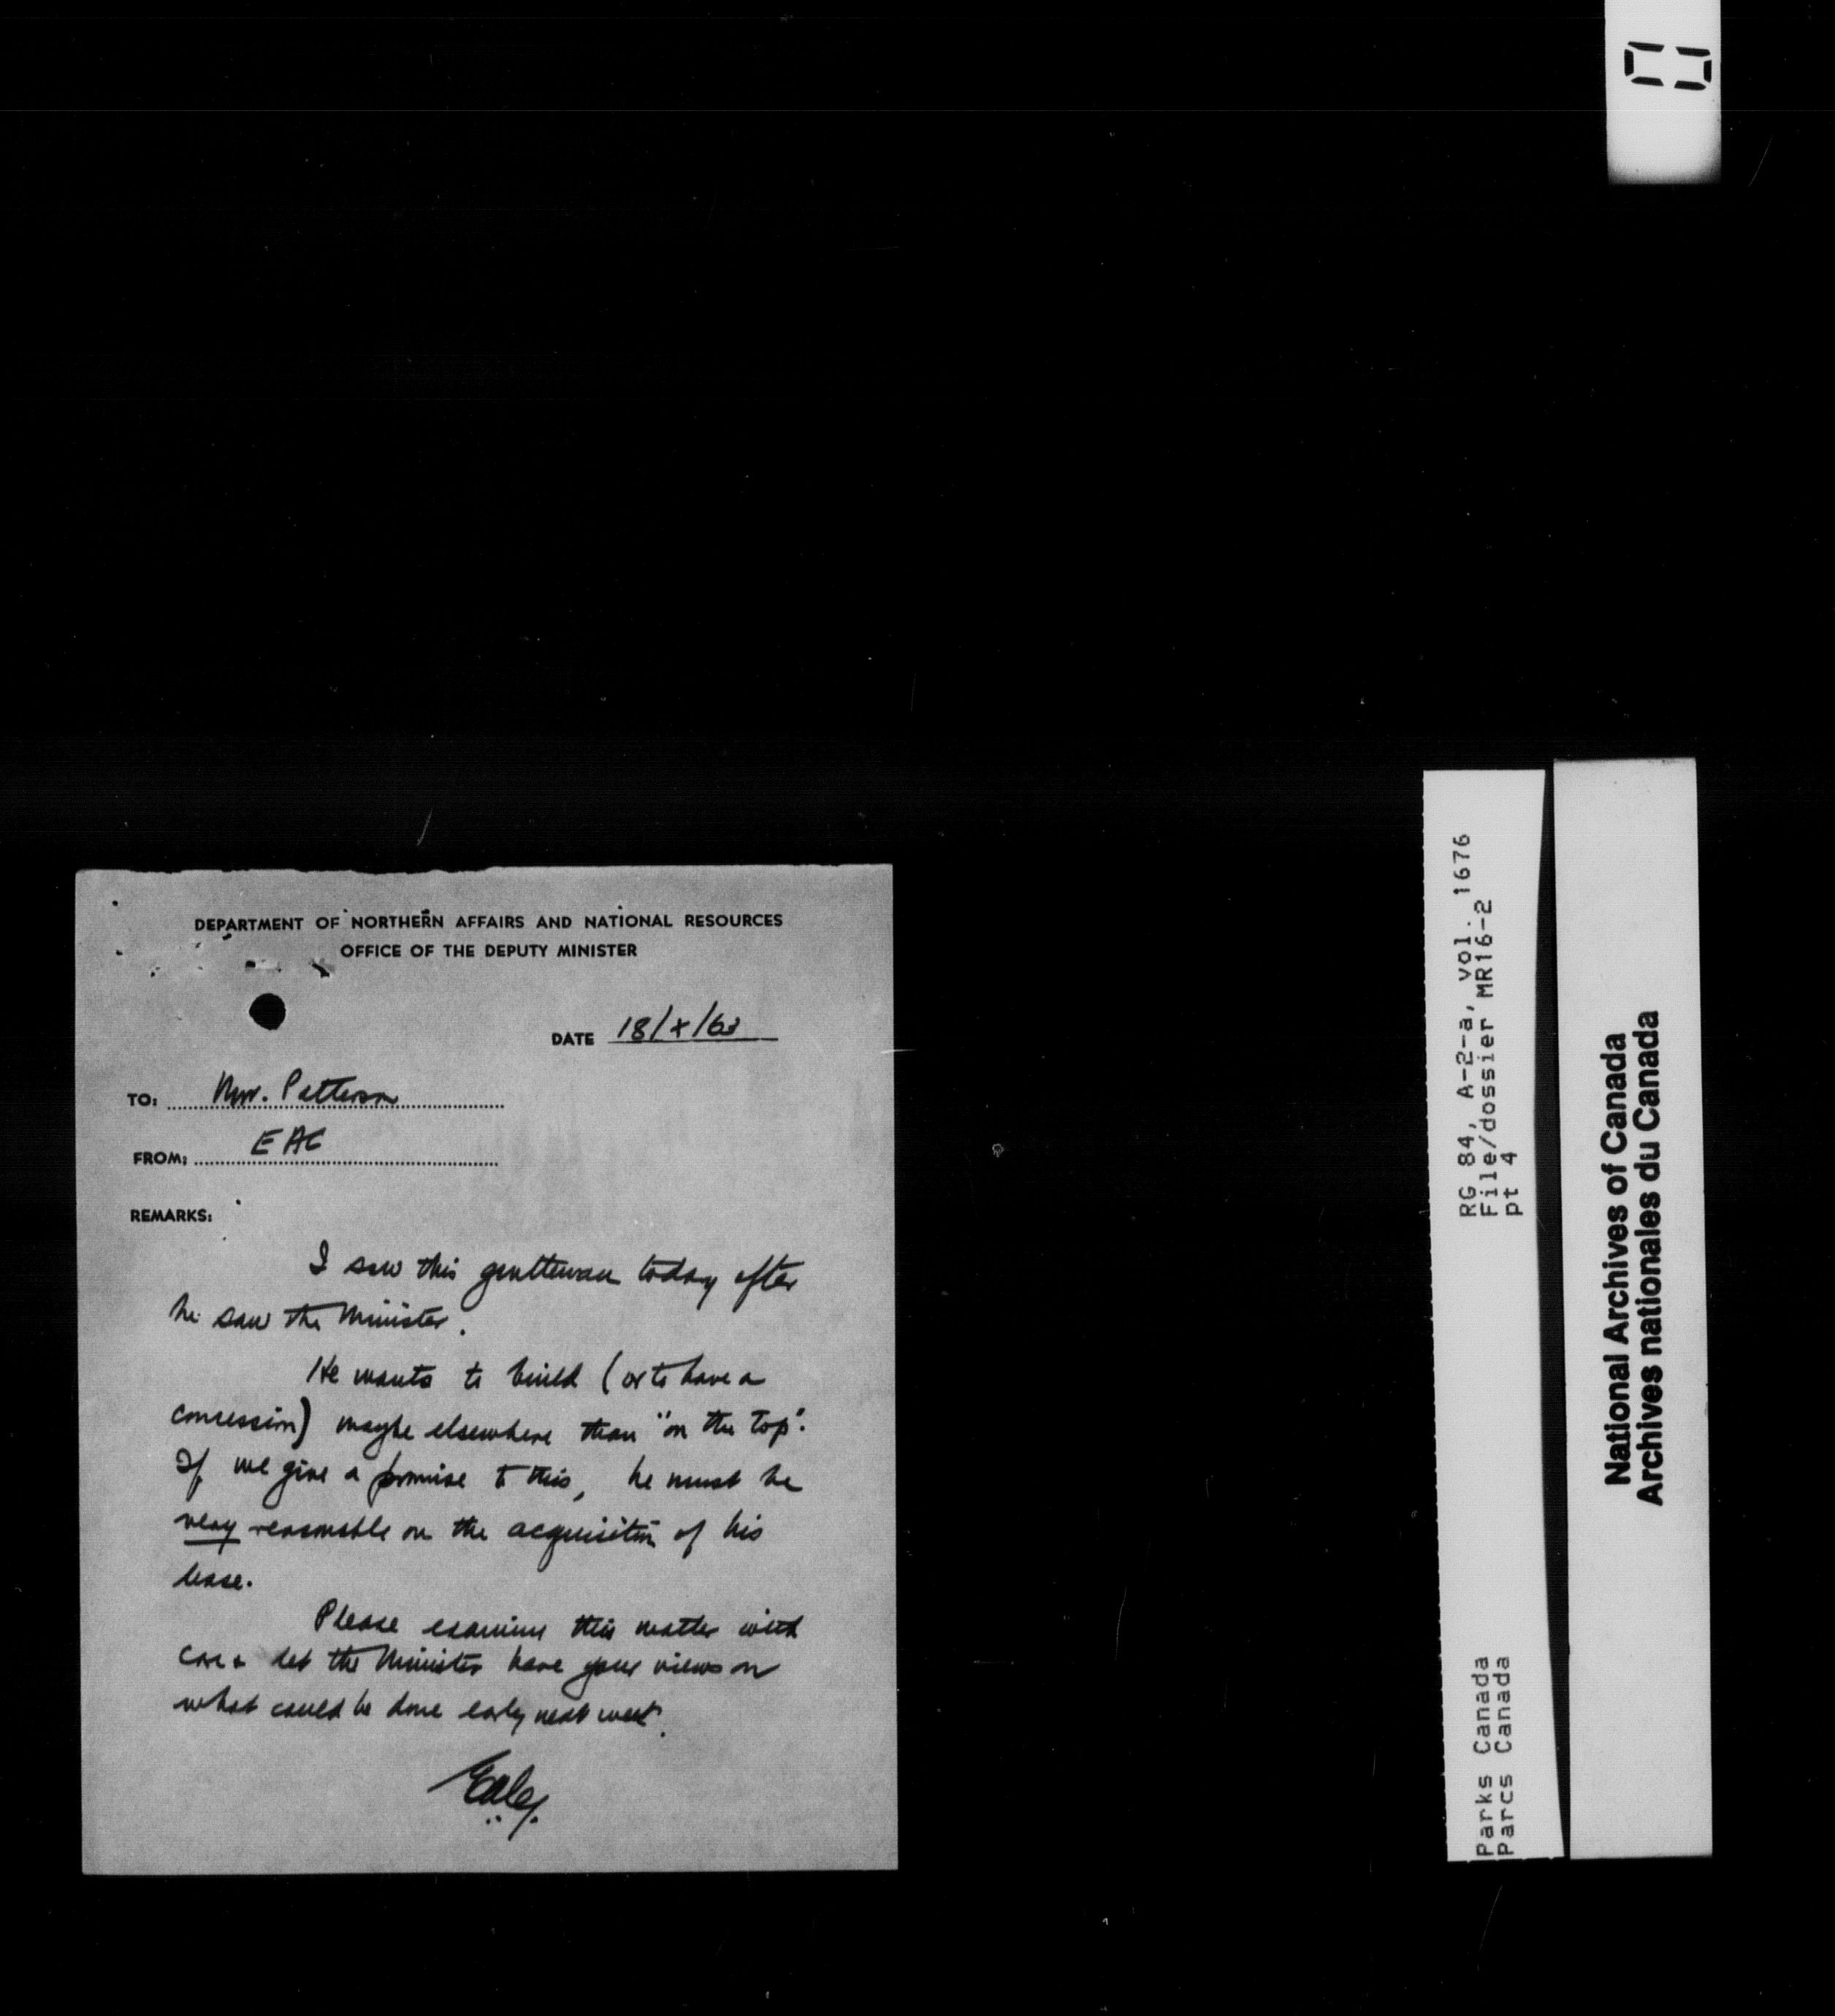 DEPARTMENT OF NORTHERN AFFAIRS AND NATIONAL RESOURCES
OFFICE OF THE DEPUTY MINISTER
DATE 18/X/63
TO: Mr. Patterson
FROM: EAC
REMARKS:
I saw this gentleman today after
he saw the Minister.
He wants to build (or to have a
concession) maybe elsewhere than "on the top".
If we give a promise to this, he must be
very reasonable on the acquisition of his
lease.
Please examine this matter with
care & let the Minister have your views on
what could be done early next week.
RG 84, A-2-a, vol. 1676
File/dossier MR16-2
pt 4
Parks Canada
Parcs Canada
National Archives of Canada
Archives nationales du Canada